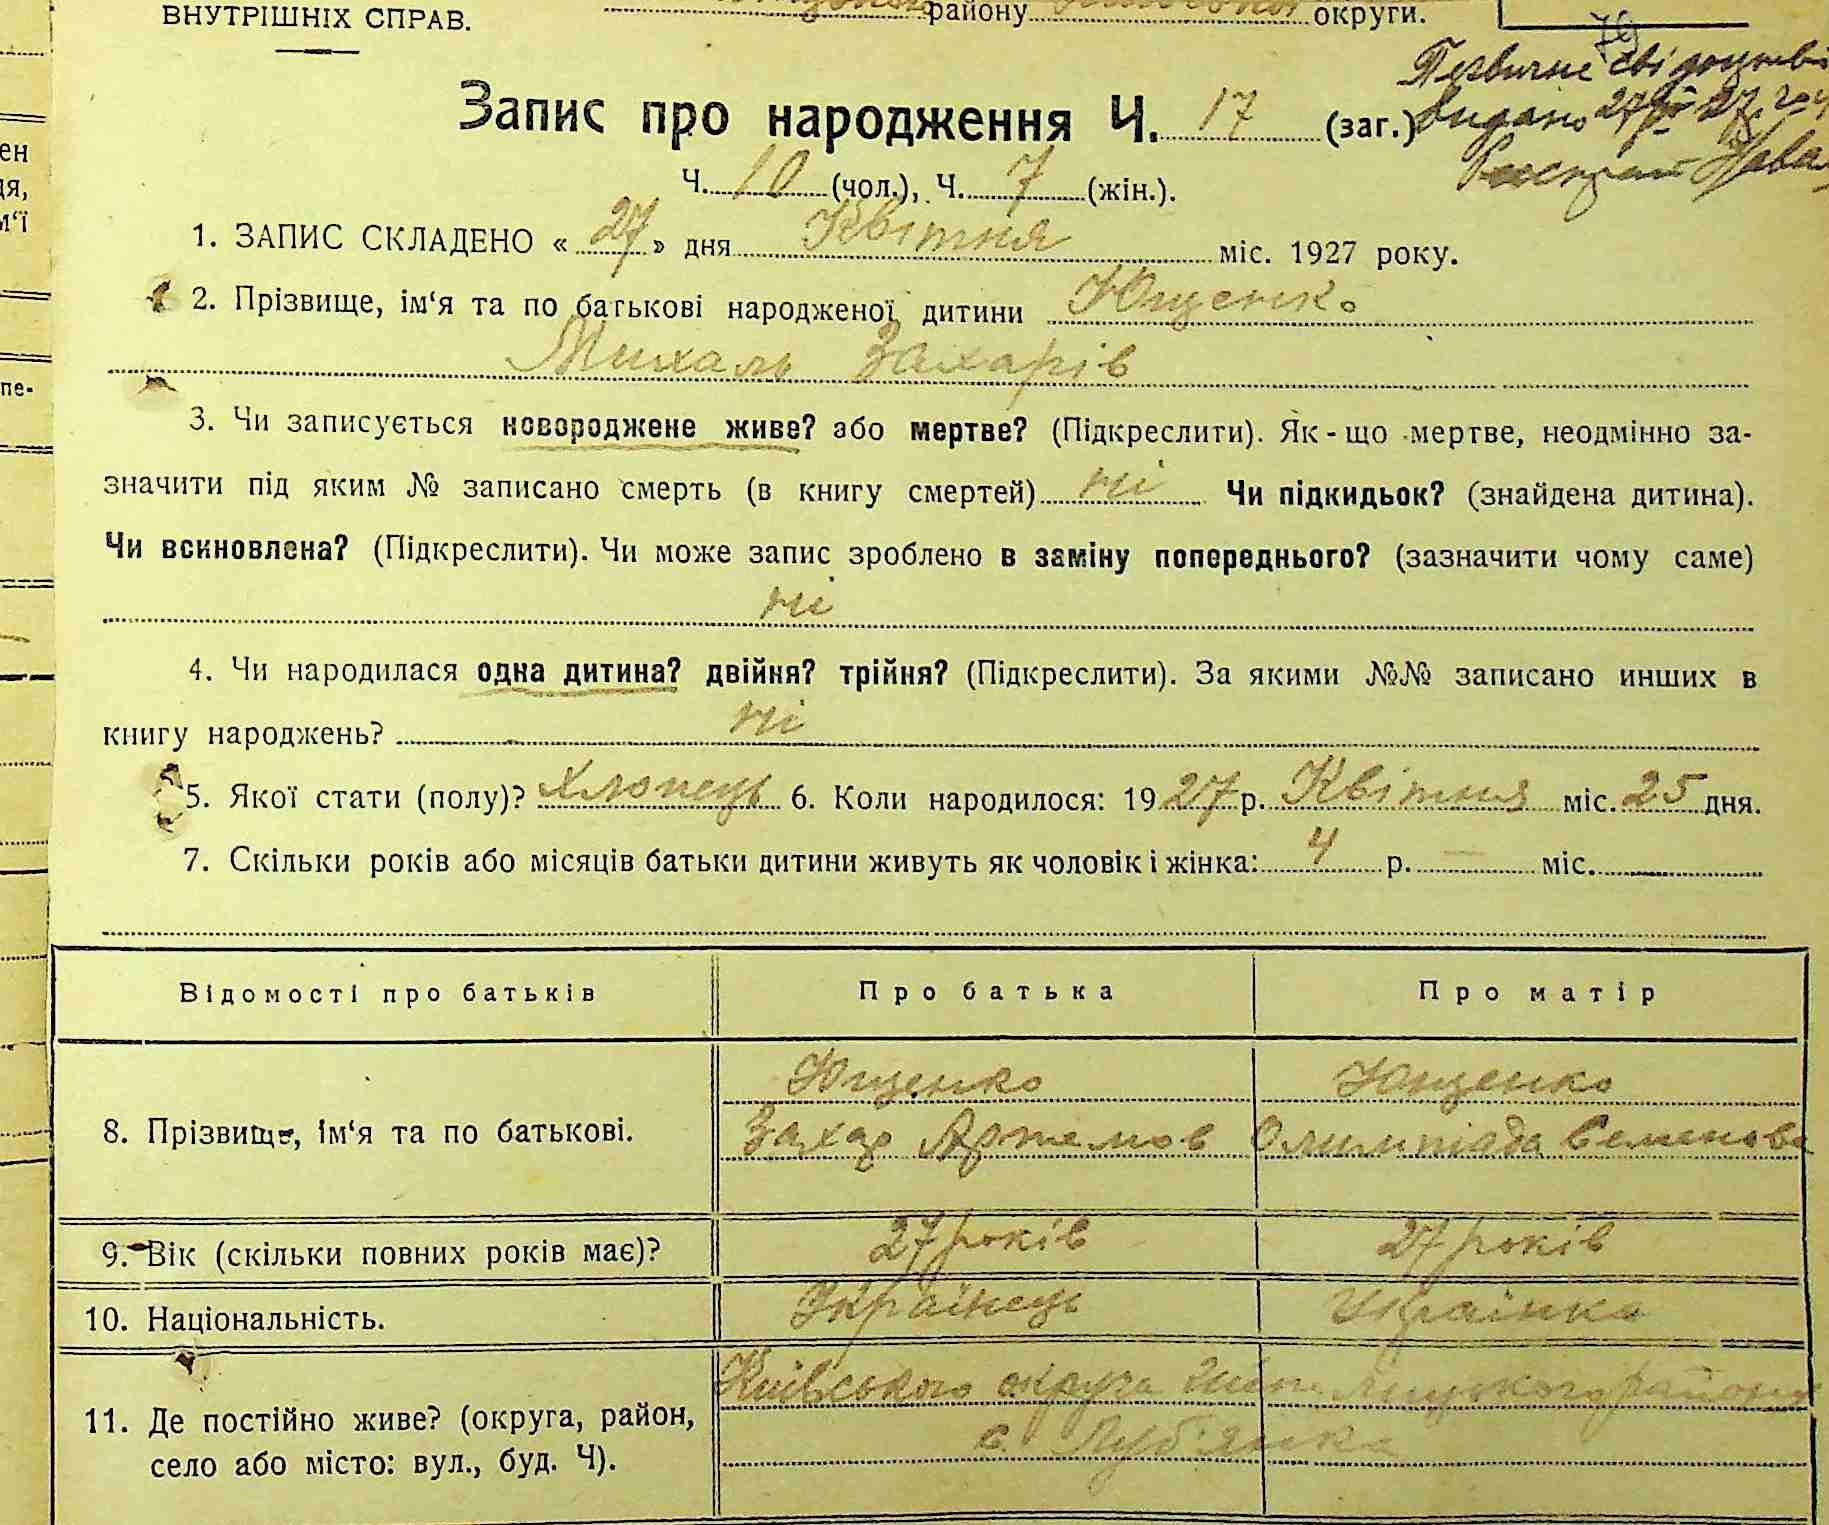 ВНУТРІШНІХ СПРАВ.
району округи.
Первичне свідоцтво
видано 27/IV 27 году
Запис про народження Ч. 17 (заг.)
Ч. 10 (чол.), Ч. 7 (жін.).
1. ЗАПИС СКЛАДЕНО « 27 » дня Квітня міс. 1927 року.
2. Прізвище, ім‘я та по батькові народженої дитини Ющенко
Михаль Захарів
3. Чи записується новороджене живе? або мертве? (Підкреслити). Як-що мертве, неодмінно за-
значити під яким № записано смерть (в книгу смертей) ні Чи підкидьок? (знайдена дитина).
Чи всиновлена? (Підкреслити). Чи може запис зроблено в заміну попереднього? (зазначити чому саме)
ні
4. Чи народилася одна дитина? двійня? трійня? (Підкреслити). За якими №№ записано инших в
книгу народжень? ні
5. Якої стати (полу)? Хлопець 6. Коли народилося: 1927 р. Квітня міс. 25 дня.
7. Скільки років або місяців батьки дитини живуть як чоловік і жінка: 4 р. — міс.
Відомості про батьків Про батька Про матір
8. Прізвище, ім‘я та по батькові. Ющенко Ющенко
Захар Артемов Олимпіада Семенова
9. Вік (скільки повних років має)? 27 років 27 років
10. Національність. Українець Українка
11. Де постійно живе? (округа, район, Київського округа района
село або місто: вул., буд. Ч). с. Луб'янка
ен
ця,
м‘ї
пе-